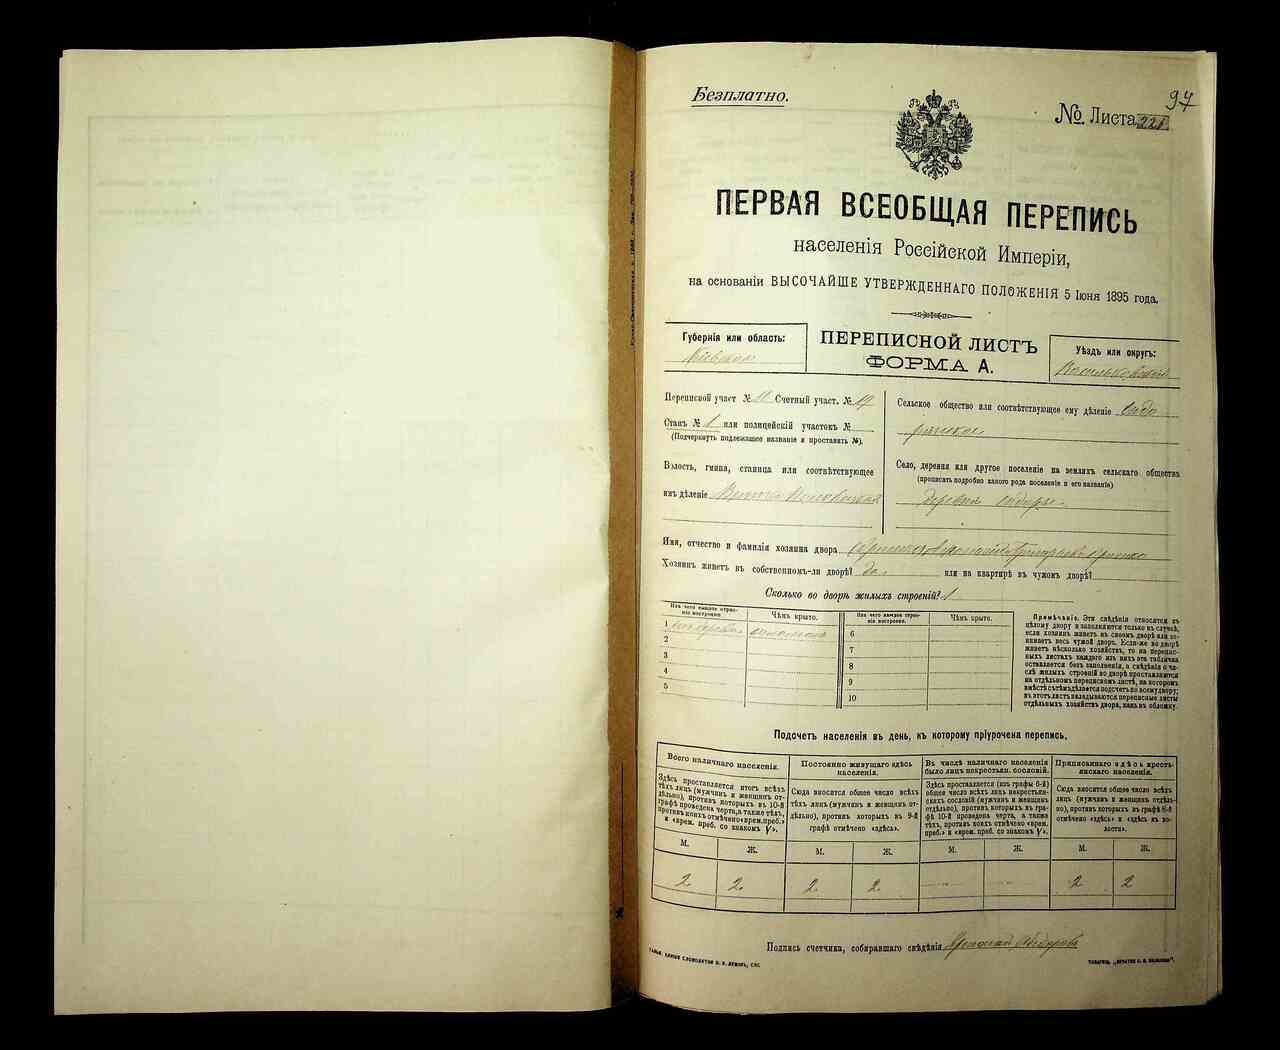 Безплатно.
97
№ Листа 228
ПЕРВАЯ ВСЕОБЩАЯ ПЕРЕПИСЬ
населенія Россійской Имперіи,
на основаніи ВЫСОЧАЙШЕ УТВЕРЖДЕННАГО ПОЛОЖЕНІЯ 5 Іюня 1895 года.
Губернія или область:
Кіевская
ПЕРЕПИСНОЙ ЛИСТЪ
ФОРМА А.
Уѣздъ или округъ:
Васильковскій
Переписной участ № 11 Счетный участ. № 19
Станъ № 1 или полицейскій участокъ №
(Подчеркнуть подлежащее названіе и проставить №).
Волость, гмина, станица или соотвѣтствующее
имъ дѣленіе
Сельское общество или соотвѣтствующее ему дѣленіе
Село, деревня или другое поселеніе на земляхъ сельскаго общества
(прописать подробно какого рода поселеніе и его названіе)
деревня
Имя, отчество и фамилія хозяина двора
Хозяинъ живетъ въ собственномъ-ли дворѣ? да или на квартирѣ въ чужомъ дворѣ?
Сколько во дворѣ жилыхъ строеній? 1
Изъ чего каждое строе-
ніе построено.
Чѣмъ крыто.
Изъ чего каждое строе-
ніе построено.
Чѣмъ крыто.
1 соломою 6
2 7
3 8
4 9
5 10
Примѣчаніе. Эти свѣдѣнія относятся къ
цѣлому двору и заполняются только въ случаѣ,
если хозяинъ живетъ въ своемъ дворѣ или за-
нимаетъ весь чужой дворъ. Если-же во дворѣ
живетъ нѣсколько хозяйствъ, то на перепис-
ныхъ листахъ каждаго изъ нихъ эта табличка
оставляется безъ заполненія, а свѣдѣнія о чи-
слѣ жилыхъ строеній во дворѣ проставляются
на отдѣльномъ переписномъ листѣ, на которомъ
вмѣстѣ съ тѣмъ дѣлается подсчетъ по всему двору;
въ этотъ листъ вкладываются переписные листы
отдѣльныхъ хозяйствъ двора, какъ въ обложку.
Подсчетъ населенія въ день, къ которому пріурочена перепись.
Всего наличнаго населенія.
Здѣсь проставляется итогъ всѣхъ
тѣхъ лицъ (мужчинъ и женщинъ от-
дѣльно), противъ которыхъ въ 10-й
графѣ проведена черта, а также тѣхъ,
противъ коихъ отмѣчено «врем. преб.»
и «врем. преб. со знакомъ V».
Постоянно живущаго здѣсь
населенія.
Сюда вносится общее число всѣхъ
тѣхъ лицъ (мужчинъ и женщинъ от-
дѣльно), противъ которыхъ въ 9-й
графѣ отмѣчено «здѣсь».
Въ числѣ наличнаго населенія
было лицъ некрестьян. сословій.
Здѣсь проставляется (изъ графы 6-й)
общее число всѣхъ лицъ некрестьян-
скихъ сословій (мужчинъ и женщинъ
отдѣльно), противъ которыхъ въ гра-
фѣ 10-й проведена черта, а также
тѣхъ, противъ коихъ отмѣчено «врем.
преб.» и «врем. преб. со знакомъ V».
Приписаннаго здѣсь кресть-
янскаго населенія.
Сюда вносится общее число всѣхъ
лицъ (мужчинъ и женщинъ отдѣль-
но), противъ которыхъ въ графѣ 8-й
отмѣчено «здѣсь» и «здѣсь въ во-
лости».
М. Ж. М. Ж. М. Ж. М. Ж.
2 2 2 2 — — 2 2
Подпись счетчика, собиравшаго свѣдѣнія